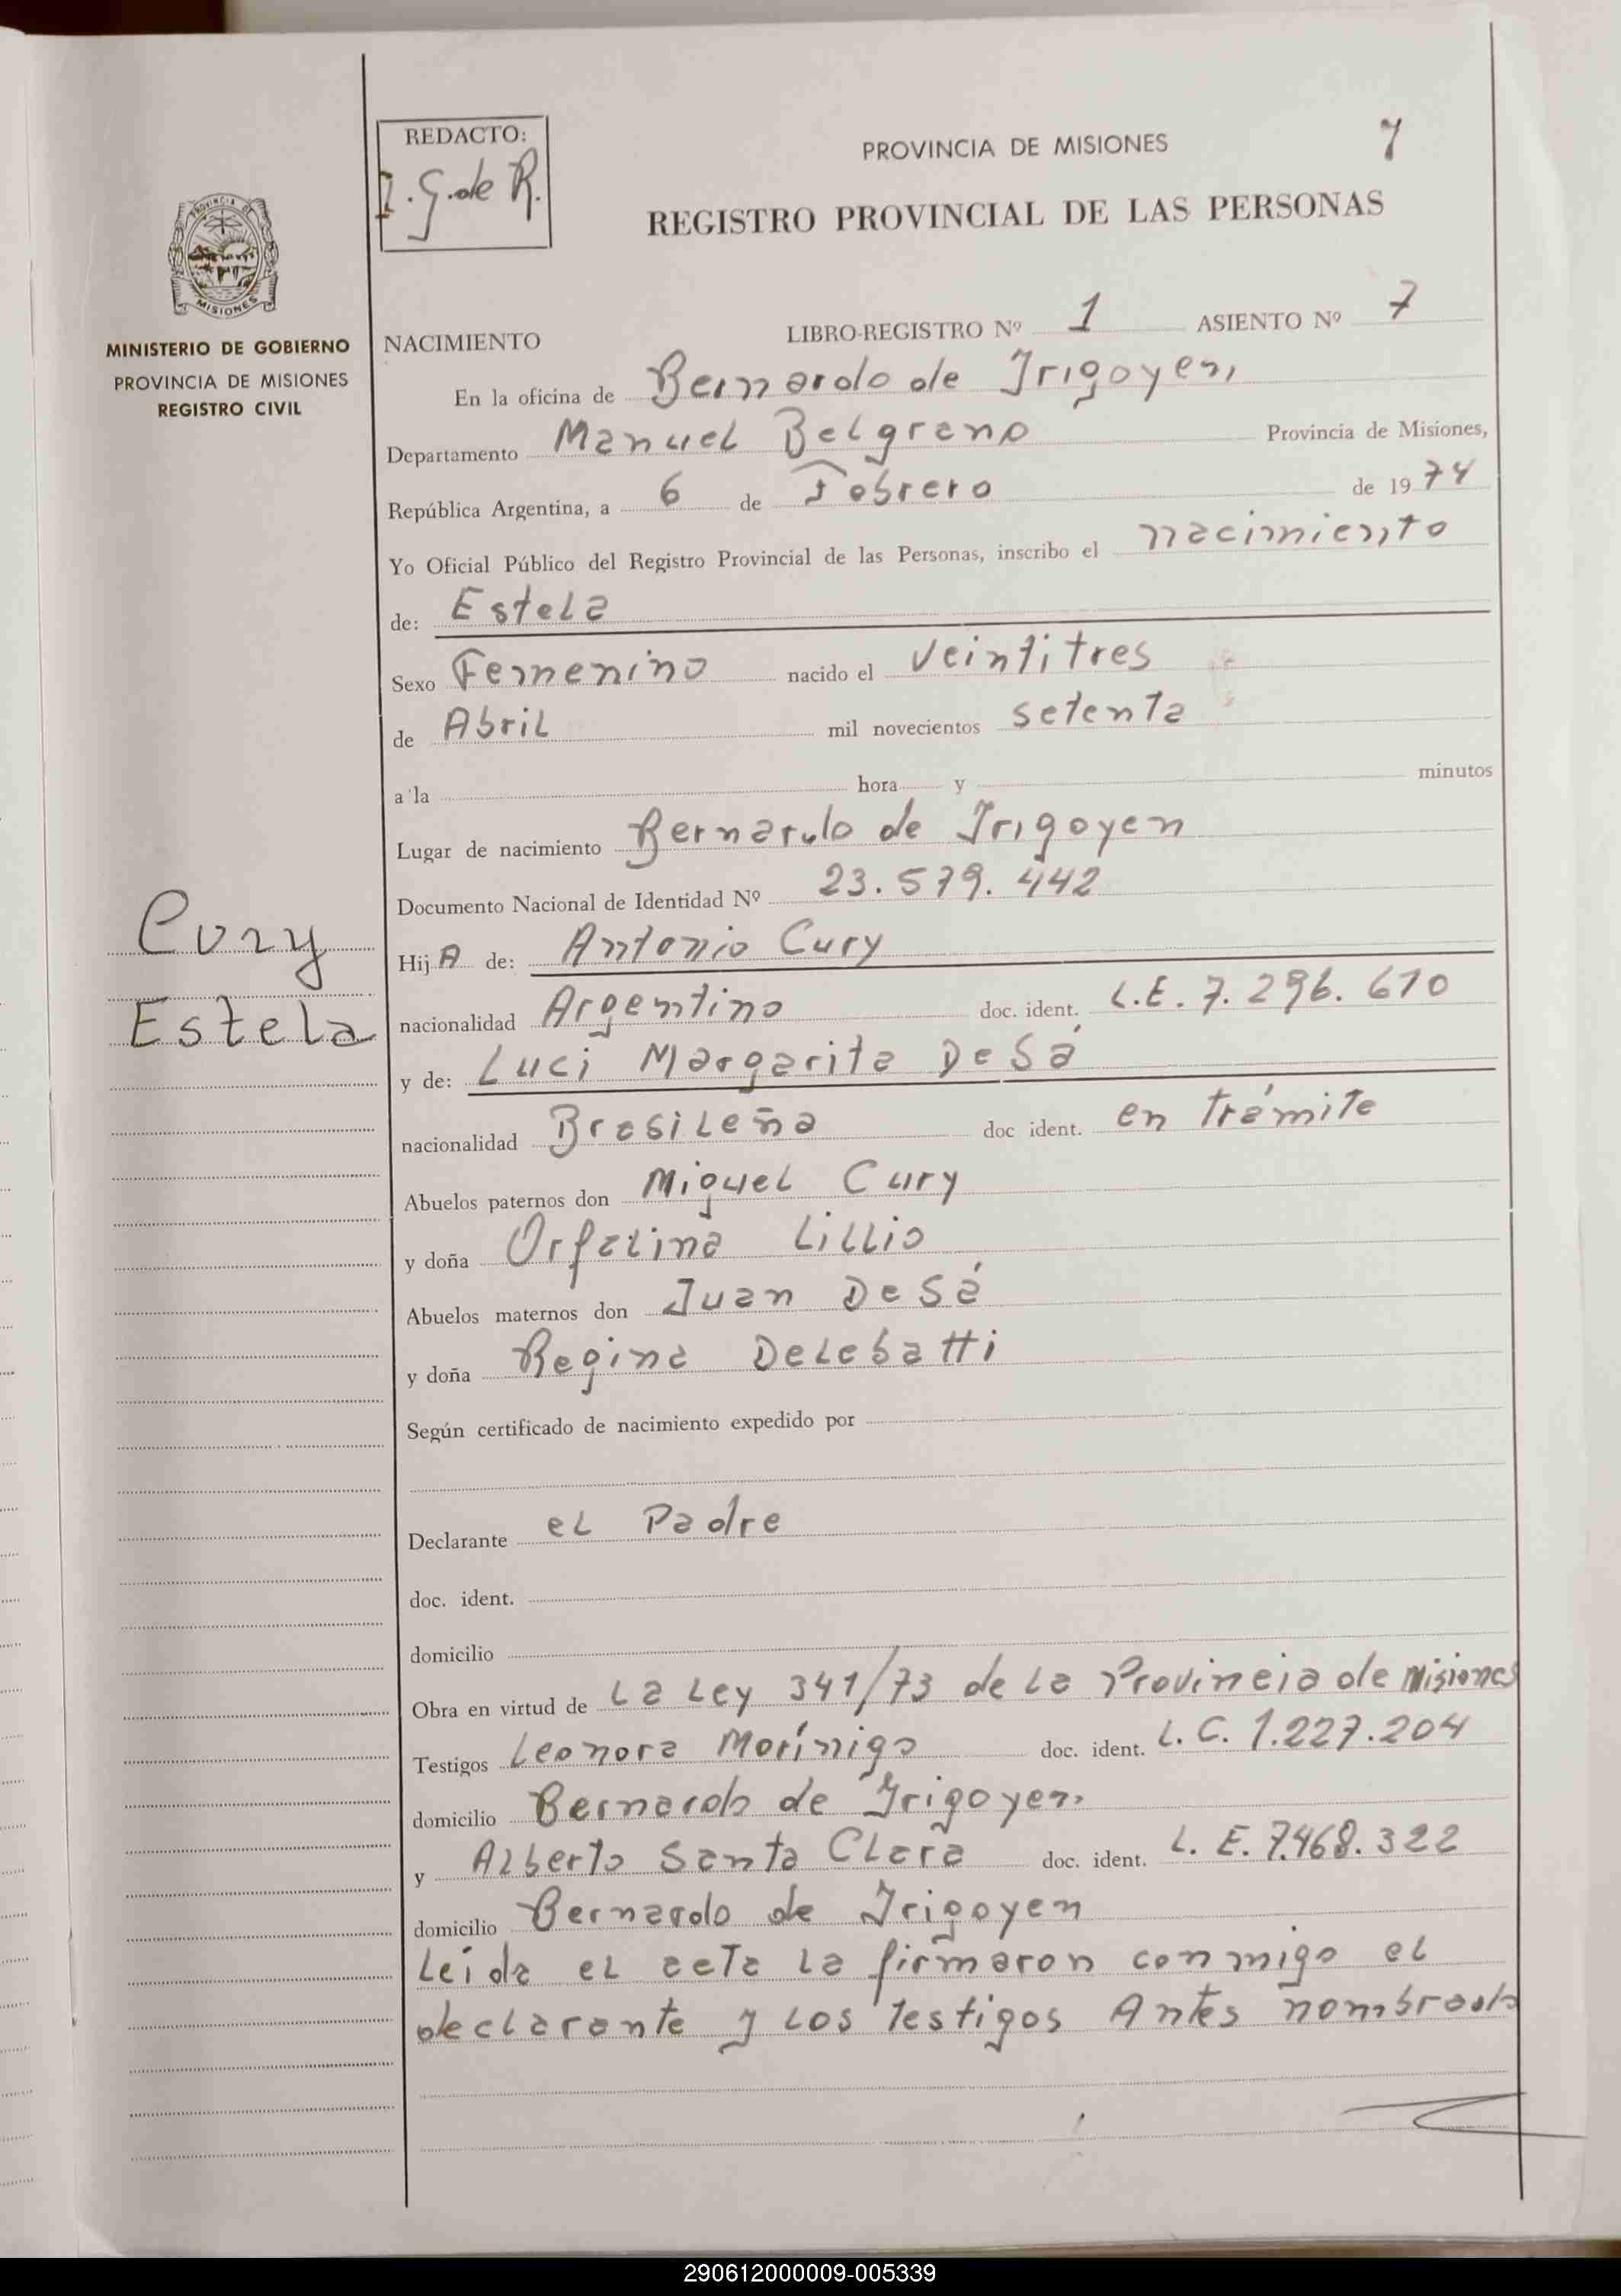 REDACTO:
I. G. de R.
PROVINCIA DE MISIONES
7
REGISTRO PROVINCIAL DE LAS PERSONAS
PROVINCIA DE
MISIONES
MINISTERIO DE GOBIERNO
PROVINCIA DE MISIONES
REGISTRO CIVIL
NACIMIENTO LIBRO-REGISTRO Nº 1 ASIENTO Nº 7
En la oficina de Bernardo de Irigoyen,
Departamento Manuel Belgrano Provincia de Misiones,
República Argentina, a 6 de Febrero de 1974
Yo Oficial Público del Registro Provincial de las Personas, inscribo el nacimiento
de: Estela
Sexo Femenino nacido el veintitres
de Abril mil novecientos setenta
a la hora y minutos
Lugar de nacimiento Bernardo de Irigoyen
Documento Nacional de Identidad Nº 23.579.442
Cury
Estela
Hij A de: Antonio Cury
nacionalidad Argentino doc. ident. L.E. 7.296.610
y de: Luci Margarita DeSá
nacionalidad Brasileña doc ident. en trámite
Abuelos paternos don Miguel Cury
y doña Orfalina Lillio
Abuelos maternos don Juan DeSá
y doña Regina Delebatti
Según certificado de nacimiento expedido por
Declarante el Padre
doc. ident.
domicilio
Obra en virtud de La Ley 341/73 de La Provincia de Misiones
Testigos Leonora Morínigo doc. ident. L.C. 1.227.204
domicilio Bernardo de Irigoyen
y Alberto Santa Clara doc. ident. L.E. 7.468.322
domicilio Bernardo de Irigoyen
Leída el acta la firmaron conmigo el
declarante y los testigos Antes nombrado
290612000009-005339